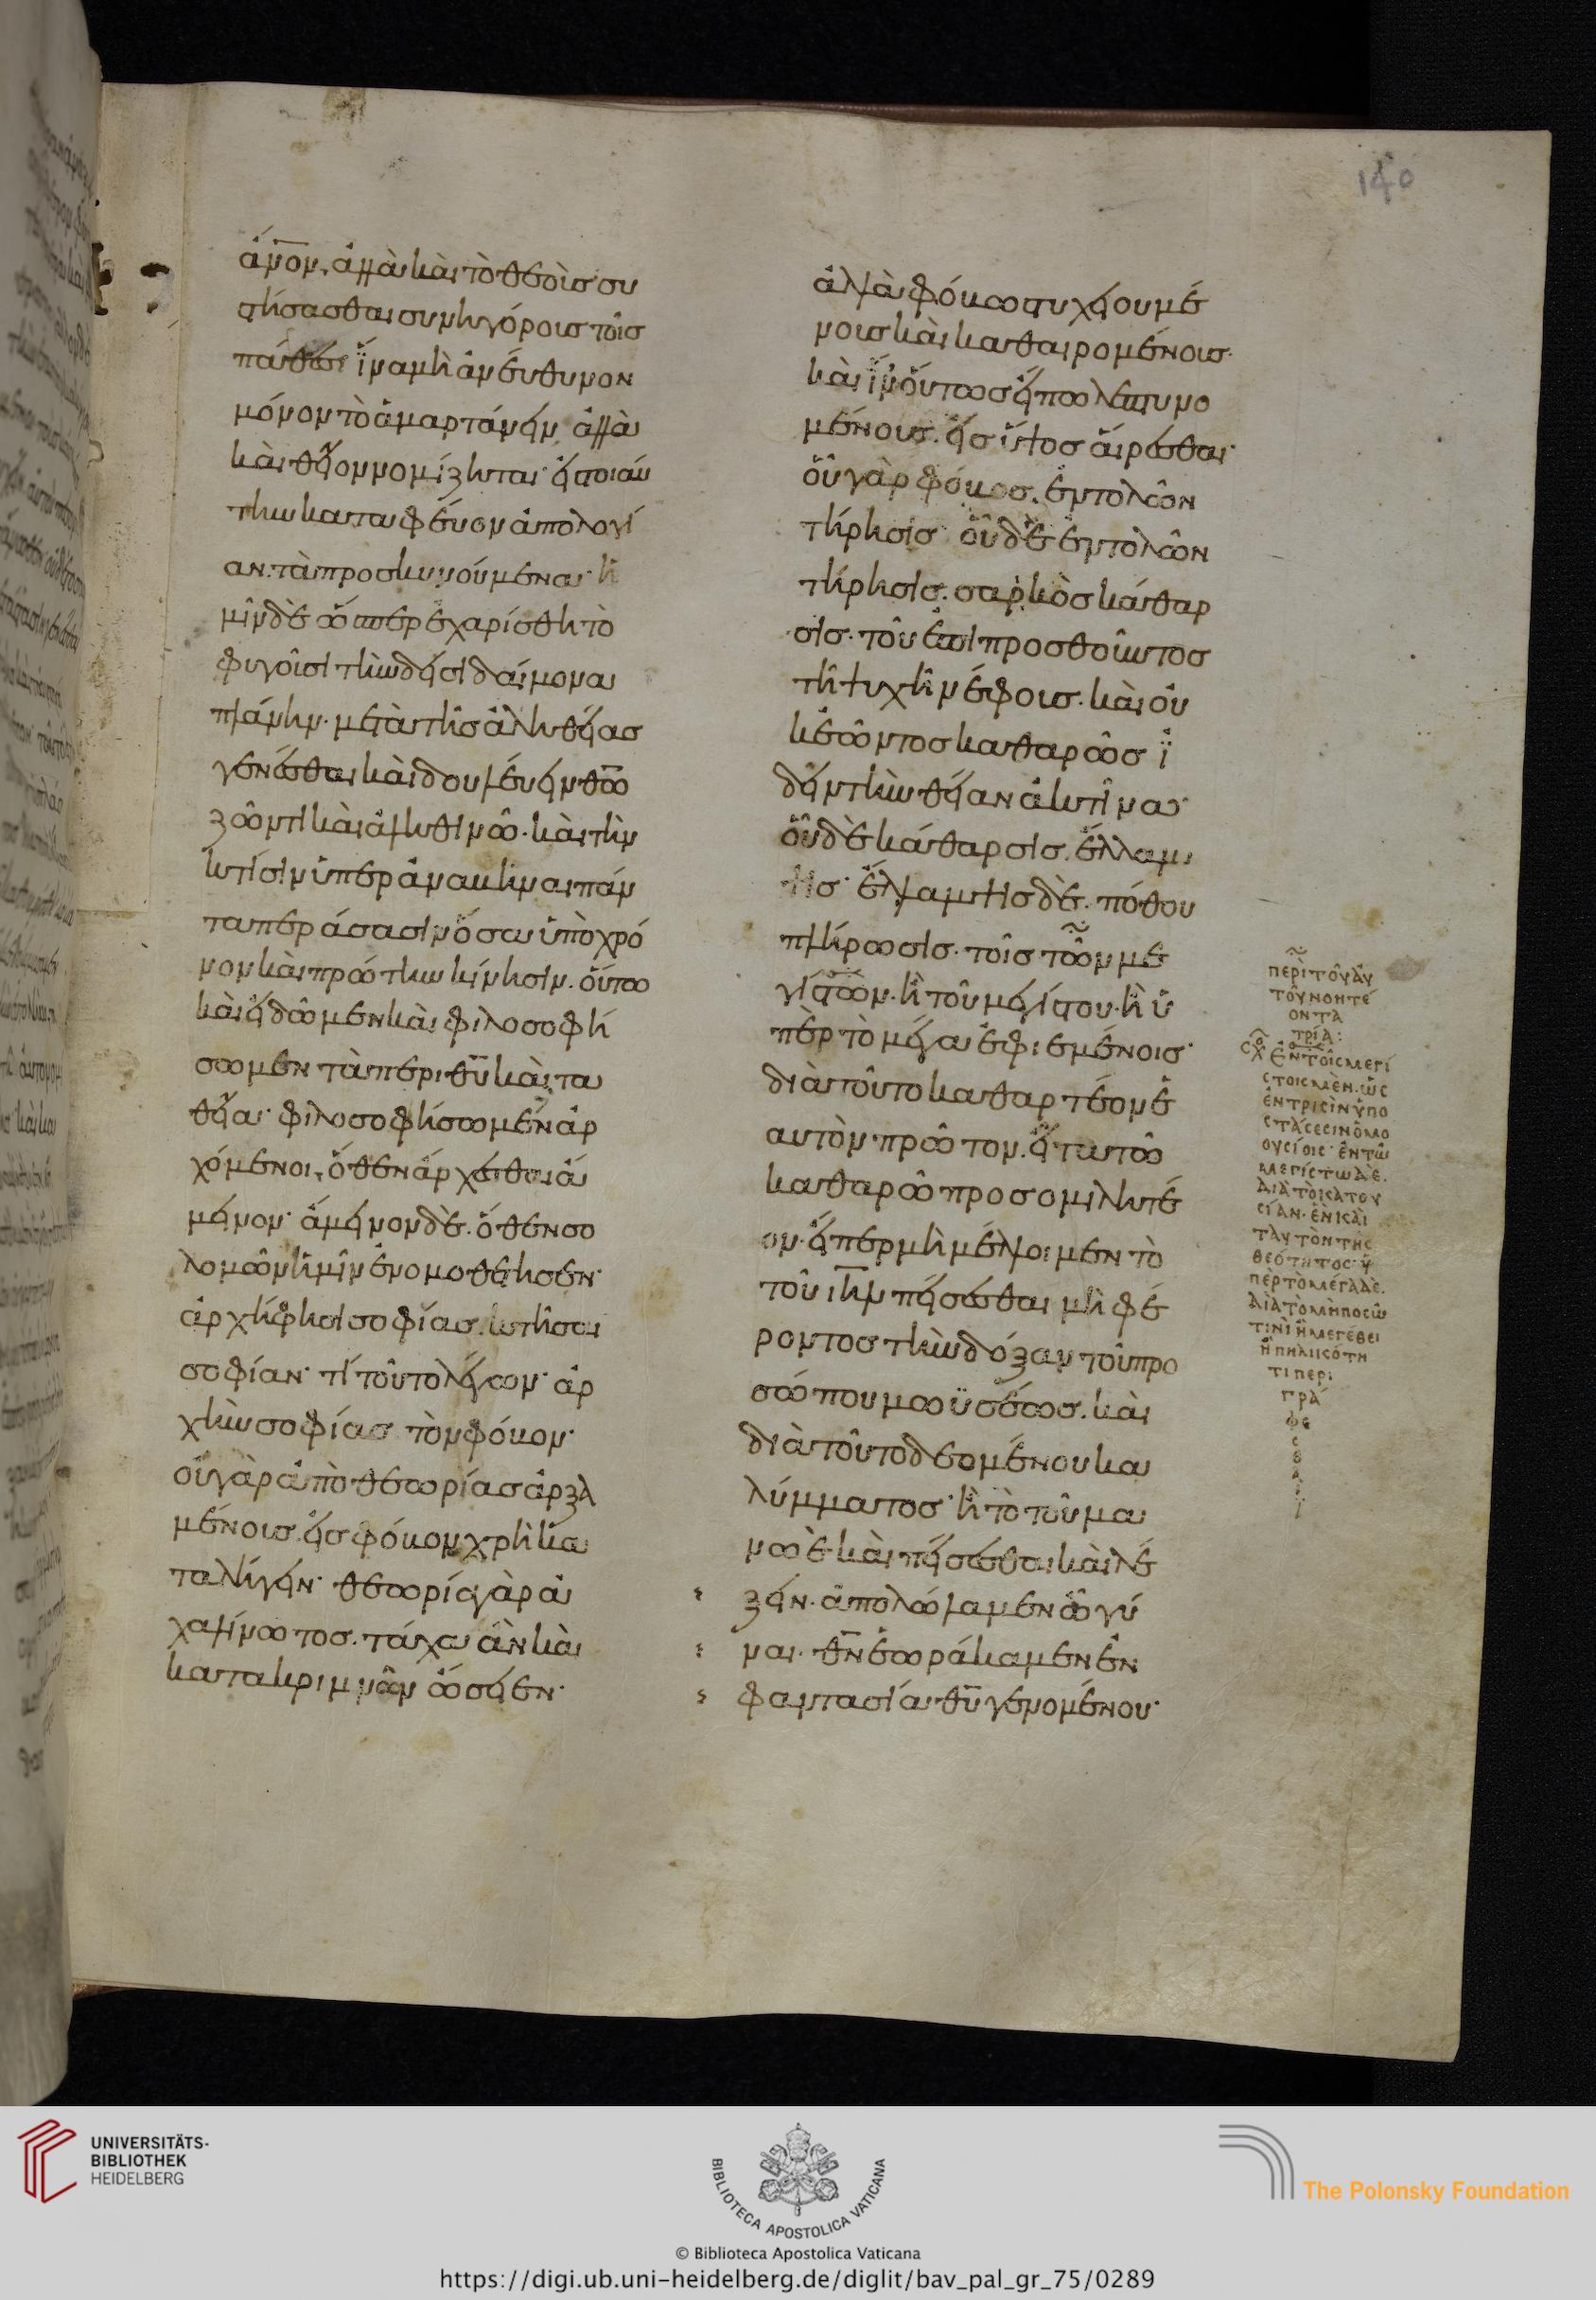 ἄνον, ἀλλὰ καὶ τὸ θεοῖς συ
στήσασθαι συνηγόροις τοῖς
πάθεσι ἵνα μὴ ἀνεύθυνον
μόνον τὸ ἁμαρτάνειν ἀλλὰ
καὶ θεῖον νομίζηται· εἰς τοιαύ
την καταφεύγον ἀπολογί
αν. τὰ προσκυνούμενα· ἡ
μῖν δὲ ὥσπερ ἐχαρίσθη τὸ
φυγοῦσι τὴν δεισιδαίμονα
πλάνην· μετὰ τῆς ἀληθείας
γενέσθαι καὶ δουλεύειν θῶ
ζῶντι καὶ ἀληθινῶ· καὶ τὴν
κτίσιν ὑπεραναβῆναι πάν
τα περάσασιν ὅσα ὑπὸ χρό
νον καὶ πρώτην κίνησιν. οὕτω
καὶ εἰδῶμεν καὶ φιλοσοφή
σωμεν τὰ περὶ θῦ καὶ τὰ
θεῖα· φιλοσοφήσωμεν ἀρ
χόμενοι, ὅθεν ἄρχεσθαι ἄ
μεινον· ἄμεινον δὲ. ὅθεν σο
λομῶν ἡμῖν ἐνομοθέτησεν·
ἀρχή φησι σοφίας. κτῆσαι
σοφίαν· τί τοῦτο λέγων· ἀρ
χὴν σοφίας τὸν φόβον·
οὐ γὰρ ἀπὸ θεωρίας ἀρξα
μένοις. εἰς φόβον χρὴ κα
ταλήγειν· θεωρία γὰρ ἀ
χαλίνωτος. τάχα ἂν καὶ
κατα κριμνῶν ὤσειεν·
ἀλλὰ φόβω στυχειουμέ
νους καὶ καθαιρομένους·
καὶ ἵν οὕτως εἴπω λεπτυνο
μένους. εἰς ὕψος αἴρεσθαι·
οὗ γὰρ φόβος. ἐντολῶν
τήρησις οὗ δὲ ἐντολῶν
τήρησις. σαρκὸς κάθαρ
σις. τοῦ ἐπιπροσθοῦντος
τῆ ψυχῆ νέφους. καὶ οὐ
κ ἐῶντος καθαρῶς ἰ
δεῖν τὴν θείαν ἀκτῖνα·
οὗ δὲ κάθαρσις. ἔλλαμ
ψις· ἔλλαμψις δὲ. πόθου
πλήρωσις. τοῖς τῶν με
γίστων. ἢ τοῦ μεγίστου. ἢ ὑ
πὲρ τὸ μέγα ἐφιεμένοις·
διὰ τοῦτο καθαρτέον ἑ
αυτὸν πρῶτον. εἶτα τῶ
καθαρῶ προσομιλητέ
ον. εἴπερ μὴ μέλλοιμεν τὸ
τοῦ ιηλ πείσεσθαι μὴ φέ
ροντος τὴν δόξαν τοῦ προ
σώπου μωϋσέως. καὶ
διὰ τοῦτο δεομένου κα
λύμματος· ἢ τὸ τοῦ μα
νωὲ καὶ πείσεσθαι καὶ λέ
ξειν. ἀπολώλαμεν ὦ γύ
ναι. θν ἑωράκαμεν ἐν
φαντασία θῦ γενομένου·
περὶ τοῦ αὐ
τοῦ νοητέ
ον τὰ
τρία:
Ἐν τοῖς μεγί
στοις μὲν. ὡς
ἐν τρισὶν ὑπο
στάσεσιν ὁμο
ουσίοις· ἐν τῶ
μεγίστω δὲ.
διὰ τὸ κατ οὐ
σίαν. ἓν καὶ
ταυτὸν τῆς
θεότητος· ὑ
πὲρ τὸ μέγα δὲ.
διὰ τὸ μὴ ποσῶ
τινὶ ἢ μεγέθει
ἢ πηλικότη
τι περι
γρά
φε
σ
θ
α
ι
140
UNIVERSITÄTS-
BIBLIOTHEK
HEIDELBERG
BIBLIOTECA APOSTOLICA VATICANA
The Polonsky Foundation
© Biblioteca Apostolica Vaticana
https://digi.ub.uni-heidelberg.de/diglit/bav_pal_gr_75/0289